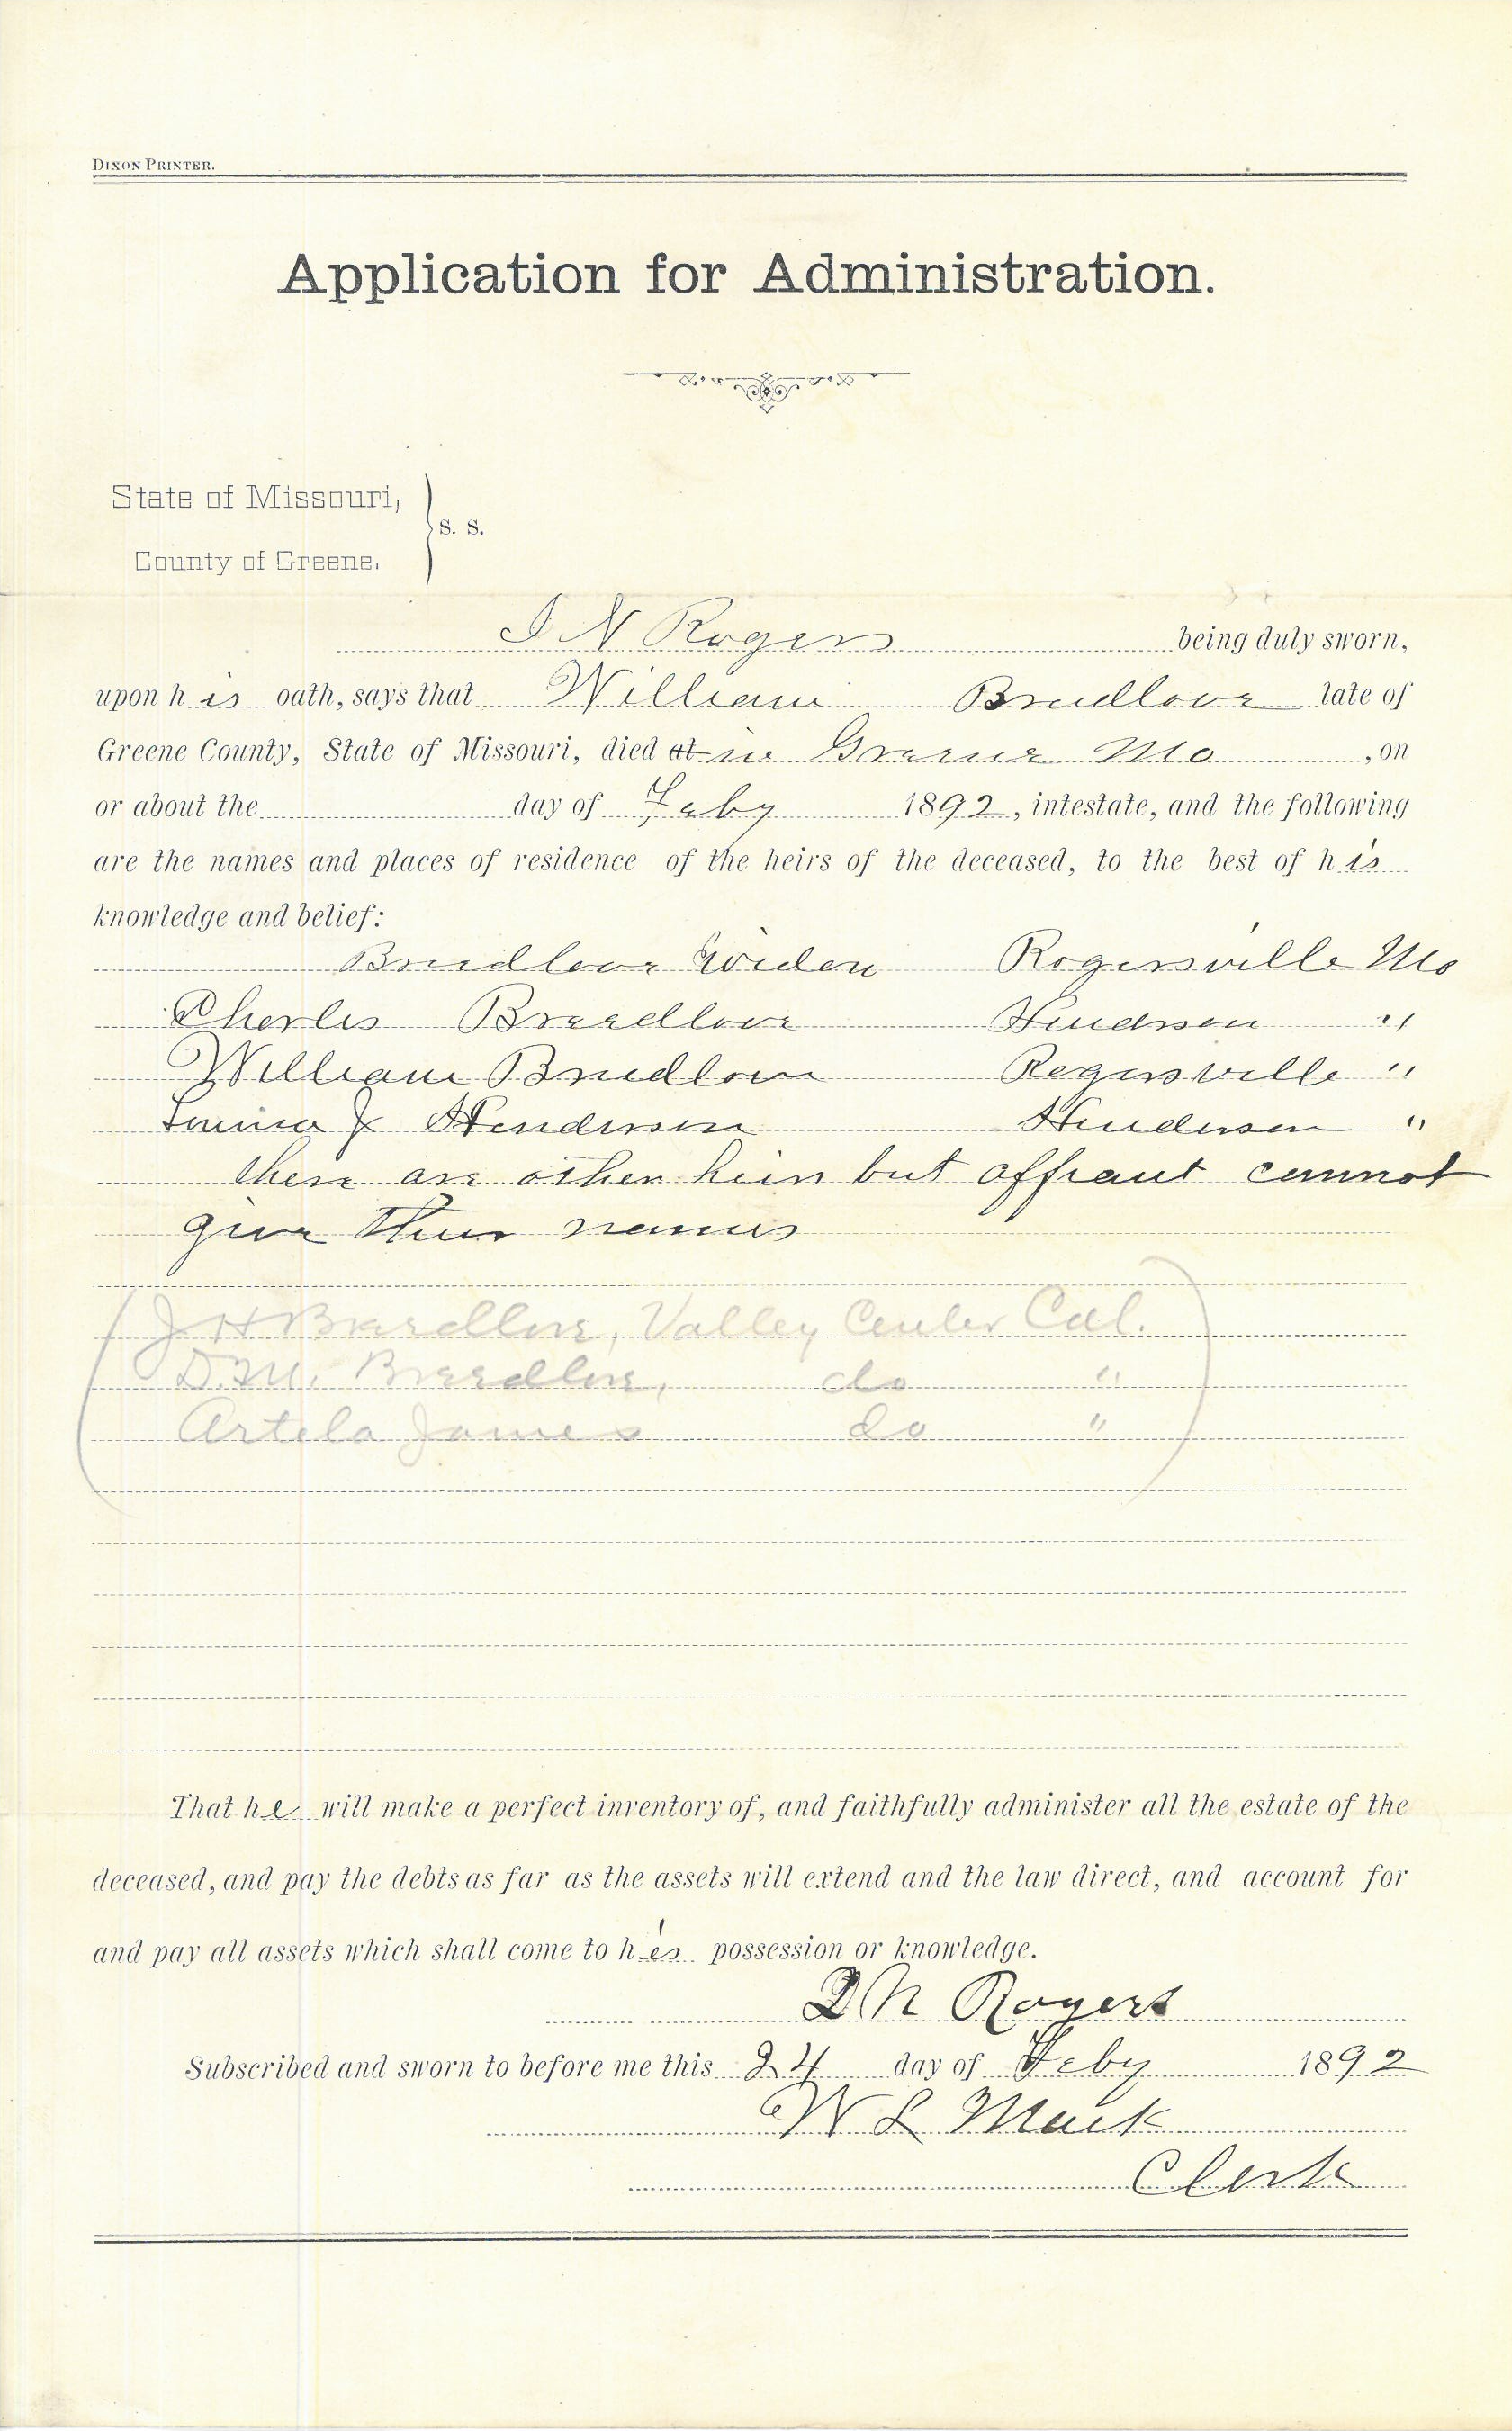 DIXON PRINTER.
Application for Administration.
State of Missouri,
S. S.
County of Greene.
I N Rogers being duly sworn,
upon his oath, says that William Breedlove late of
Greene County, State of Missouri, died at in Greene Mo , on
or about the day of Feby 1892, intestate, and the following
are the names and places of residence of the heirs of the deceased, to the best of his
knowledge and belief:
Breedlove Widow Rogersville Mo
Charles Breedlove Henderson "
William Breedlove Rogersville "
Louisa J Henderson Henderson "
there are other heirs but affiant cannot
give their names
(J H Breedlove, Valley Center Cal.
D. M. Breedlove, do "
Artela James do ")
That he will make a perfect inventory of, and faithfully administer all the estate of the
deceased, and pay the debts as far as the assets will extend and the law direct, and account for
and pay all assets which shall come to his possession or knowledge.
I N Rogers
Subscribed and sworn to before me this 24 day of Feby 1892
W L Mack
Clerk